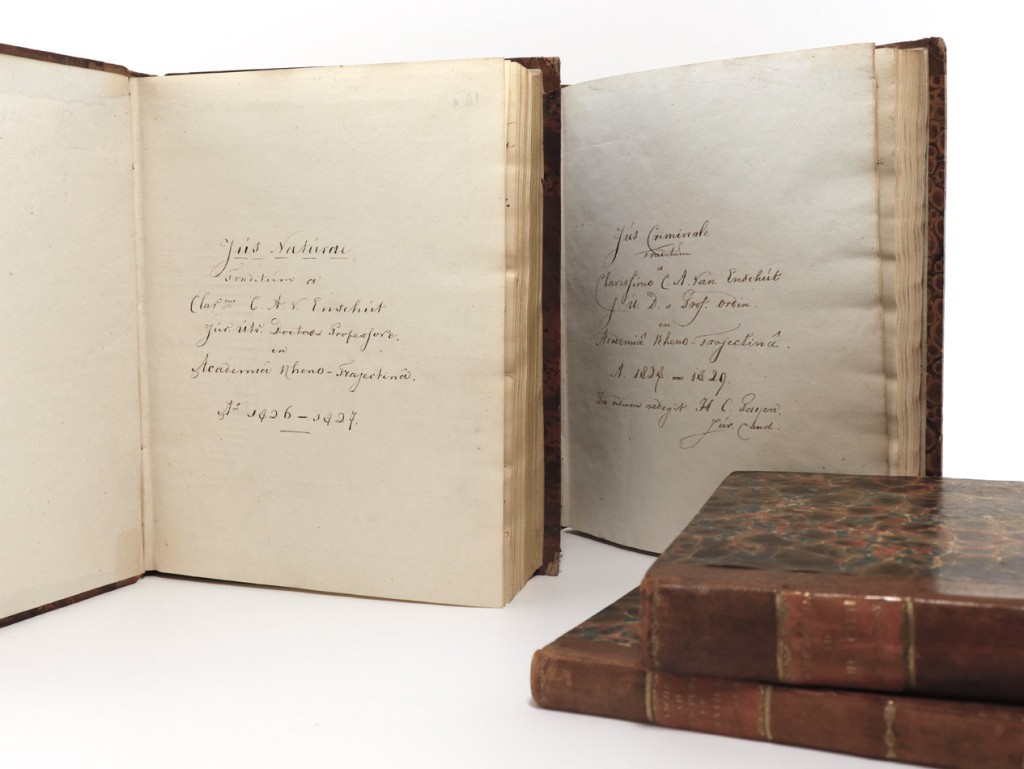 Jús Naturae
Traditúm a
Clar C. A. V. Enschút
Júr. Útr. Doctore Professore.
en
Academiâ Rheno-Trajectinâ.
Aº 1826 – 1827.
Jús Criminale
Traditúm
a
Clarissimo C. A. Van Enschút
J. U. D. & Prof. Ordin.
en
Academiâ Rheno-Trajectinâ.
A. 1828 – 1829.
redegit H. C.
Júr. Cand.